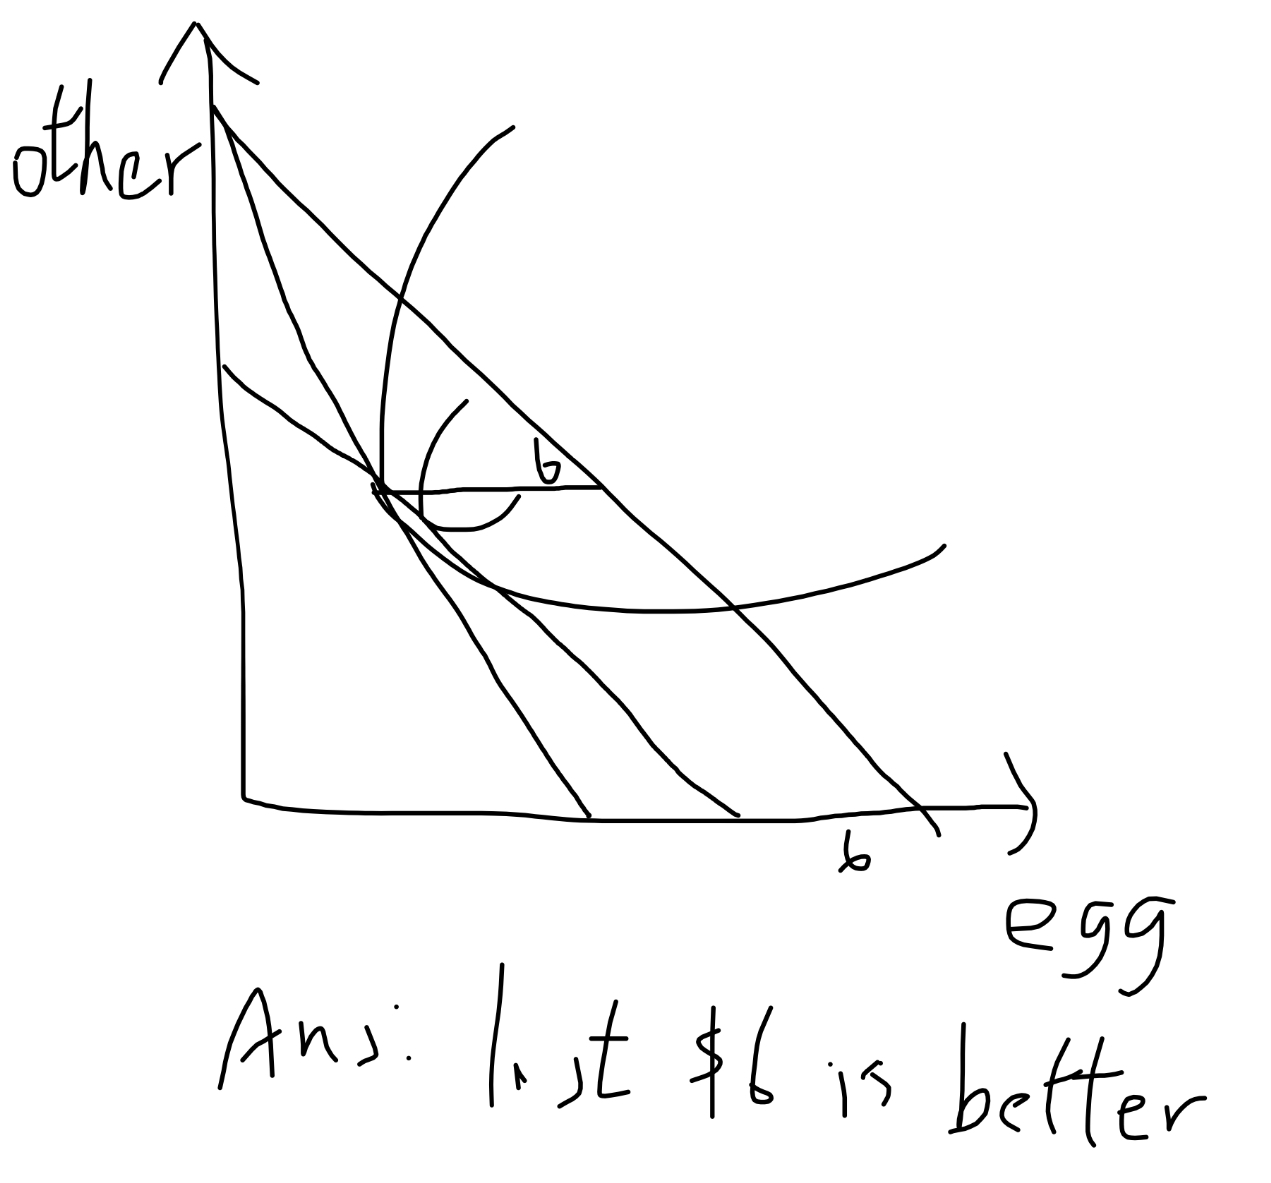 other
6
6
egg
Ans: list $6 is better